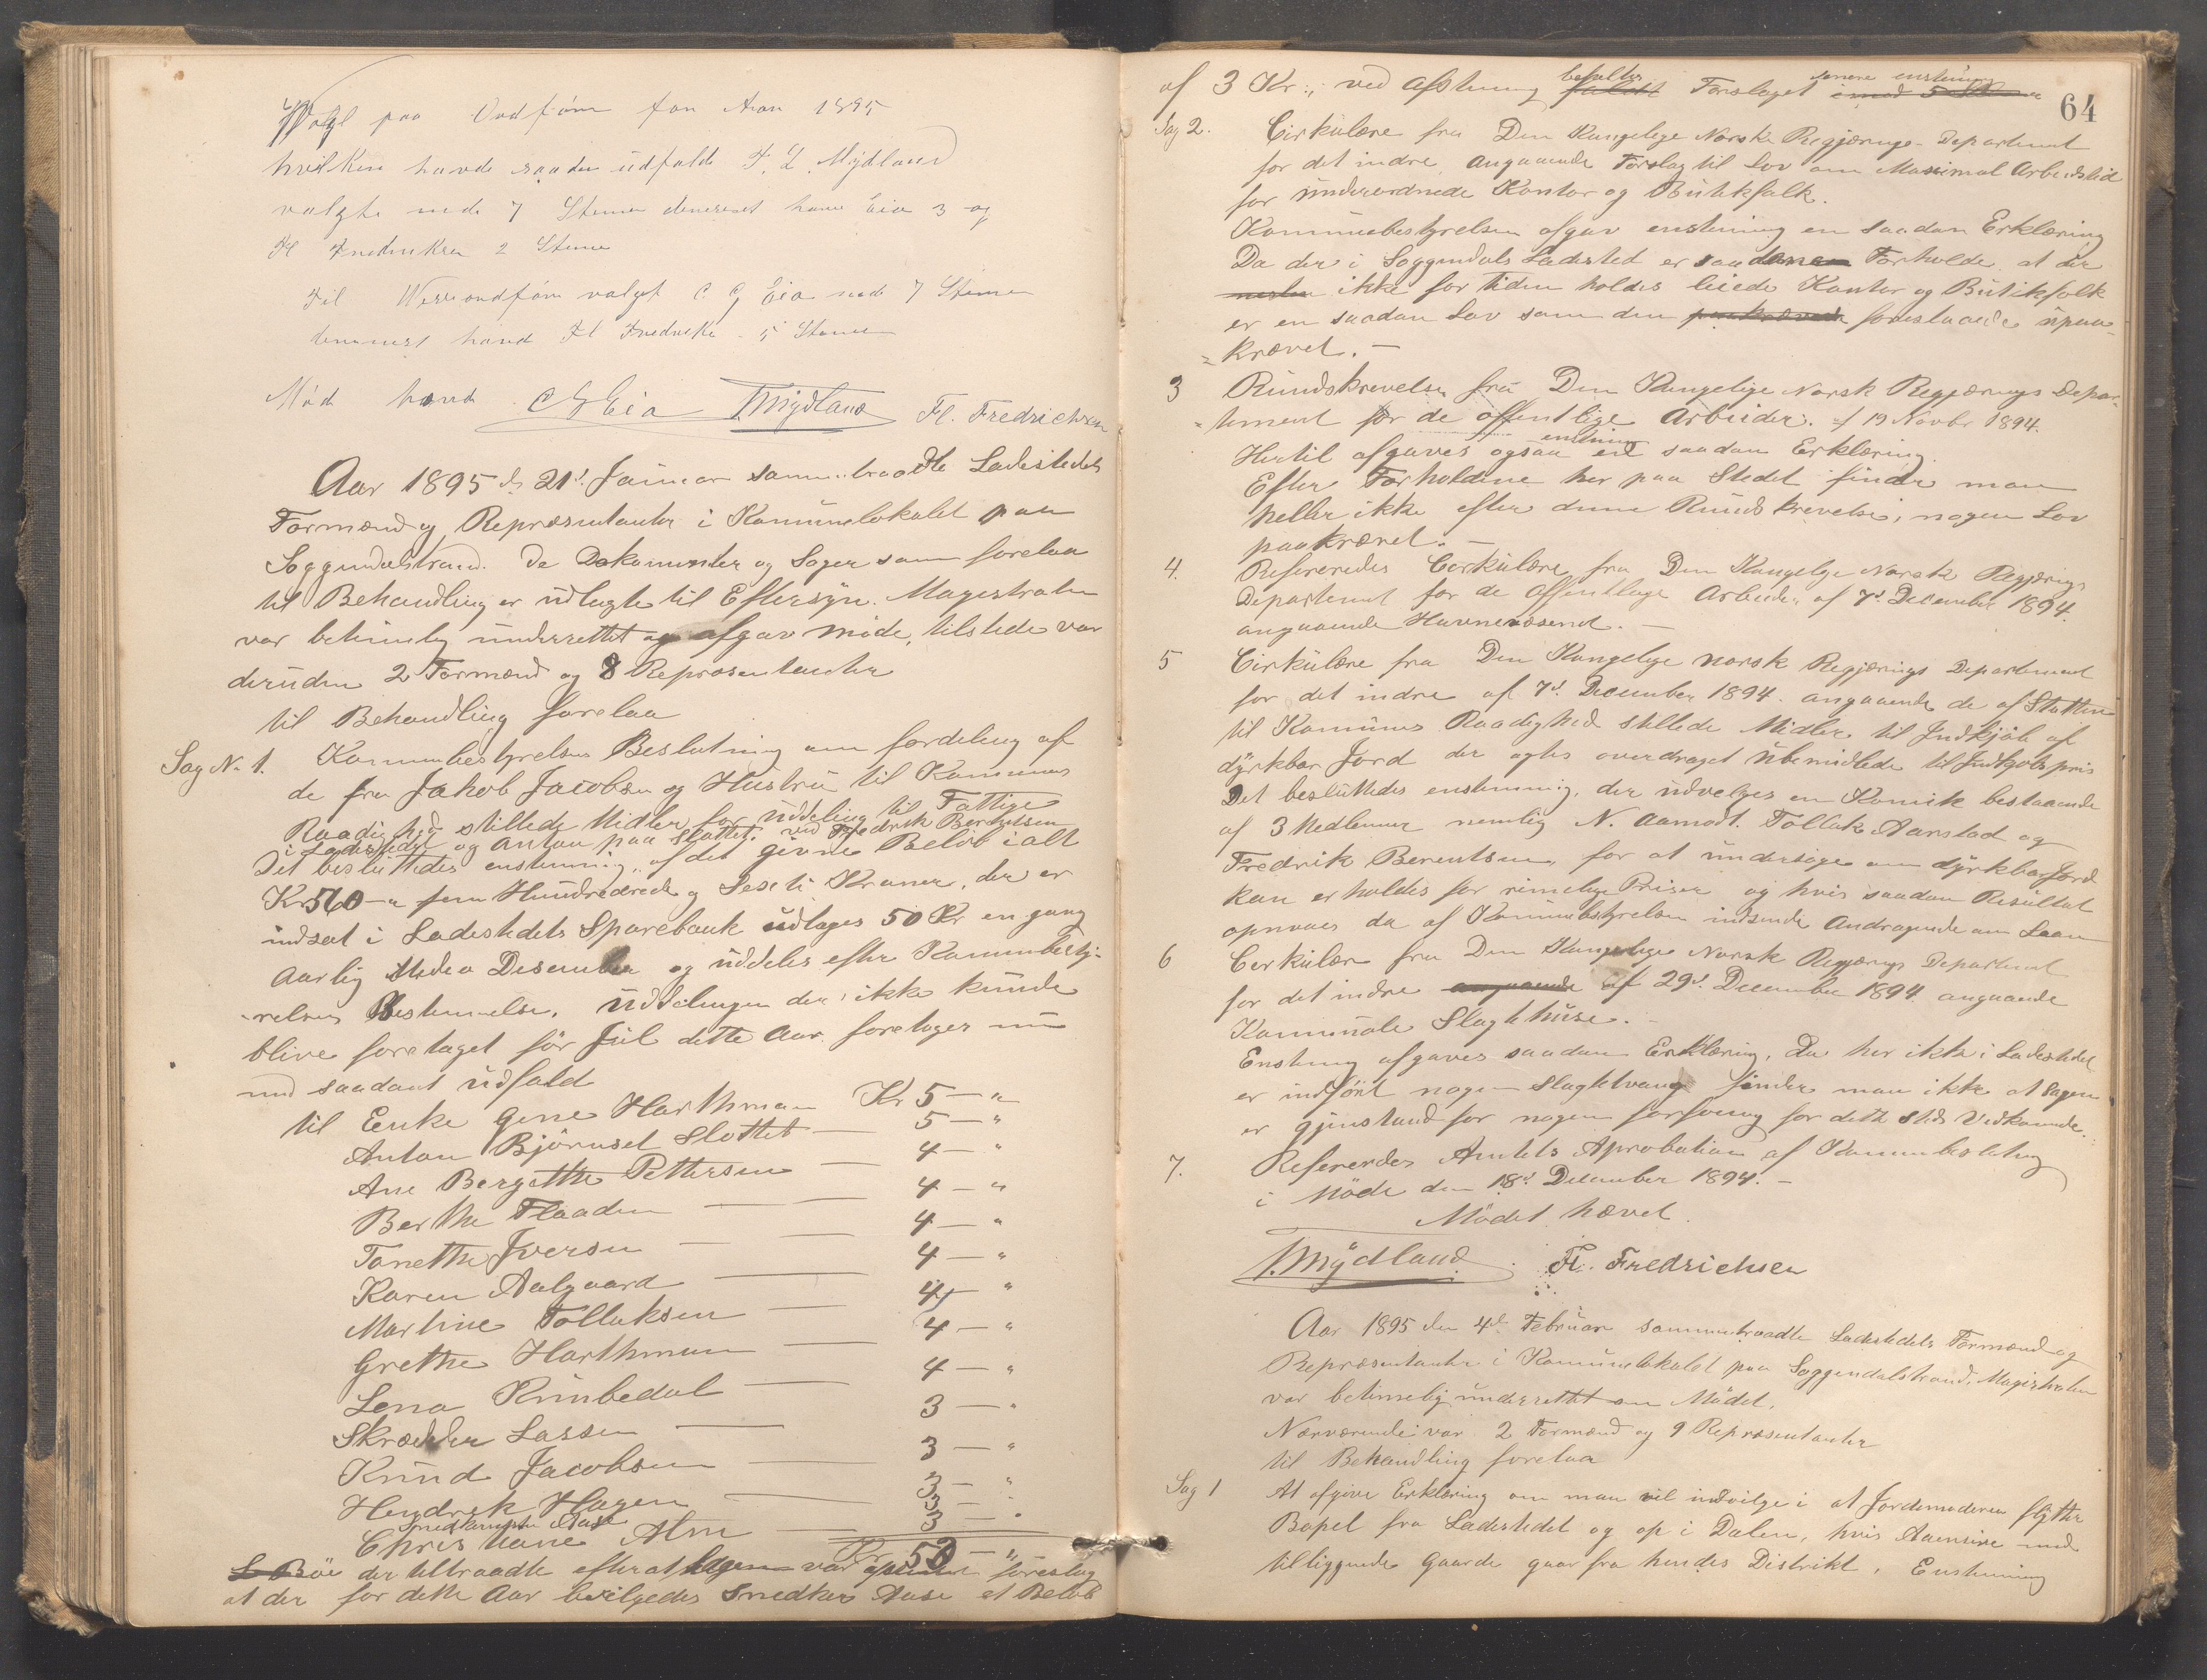 Valg paa Ordfører for Aar 1895
hvilken havde saadan udfald T. L. Mydland
valgte med 7 Stemer dernæst havde Eia 3 og
Fl Fredriksen 2 Stemer
Til Viseordfører valgt C. G Eia med 7 Stemer
dernæst havde Fl Fredrikse 5 Stemer
Mød hævet C G Eia T. Mydland Fl. Fredrichsen
Aar 1895 d. 21d Januar sammentraadte Ladestedets
Formænd og Repræsentanter i Komunelokalet paa
Soggendalstrand. De Dokumenter og Sager som forelaa
til Behandling er udlagte til Eftersyn. Magistraten
var betimelig underrettet og afgav møde, tilstede var
deruden 2 Formænd og 8 Repræsentanter
til Behandling forelaa
Sag No 1. Komunebestyrelsens Beslutning om fordeling af
de fra Jakob Jacobsen og Hustru til Komunens
Raadighed stillede Midler for uddeling til Fattige
i Ladestedet og Anton paa Slottet. ved Fredrik Berentsen
Det besluttedes enstemmig, af det givne Beløb ialt
Kr 560 — fem Hundrede og Sexti Kroner, der er
indsat i Ladestedets Sparebank udtages 50 Kr en gang
Aarlig Medio Desember og uddeles efter Komunebesty-
-relsens Bestemmelse. Uddelingen der ikke kunde
blive foretaget før Jul dette Aar foretages nu
med saadant udfald
til Enke Gine Harthman Kr 5 — "
Anton Bjørnset Slottet — 5 — "
Ane Bergitthe Pettersen — 4 — "
Berthe Flaaden — 4 — "
Tonethe Iversen — 4 — "
Karen Aalgaard — 4 — "
Martine Tolluksen — 4 — "
Grethe Harthman — 4 — "
Lena Rinbedal — 4 — "
Skrædder Lassen — 3 — "
Knud Jacobsen — 3 — "
Hendrek Hagen — 3 — "
Smedkempen Aase 3 — "
Christiane Alm — 3 — "
Kr 50 — "
L Bøe der tiltraadte efterat Sagen var foreslog
at der for dette Aar bevilgedes Smedken Aase et Beløb
64
af 3 Kr., ved afstemning befaltes faldt Forslaget senere enstemmig imod 5 Stemer
Sag 2. Cirkulære fra Den Kongelige Norske Regjerings-Departement
for det indre angaaende Forslag til Lov om Maximal Arbeidstid
for underordnede Kontor og Butikfolk.
Komunebestyrelsen afgav enstemmig en saadan Erklæring
Da der i Soggendals Ladested er saadanne Forholde, at der
næsten ikke for Tiden holdes leiede Kontor og Butikfolk
er en saadan Lov som den paakrævede forestaaende upaa-
=krævet. —
3 Rundskrevelse fra Den Kongelige Norsk Regjerings Depar-
=tement for de offentlige Arbeider. af 19 Novbr 1894.
Hertil afgaves ogsaa enstemmig en saadan Erklæring.
Efter Forholdene her paa Stedet finder man
heller ikke efter denne Rundskrevelse, nogen Lov
paakrævet. —
4. Refereredes Cerkulære fra Den Kongelige Norsk Regjerings
Departement for de offentlige Arbeider af 7d December 1894.
angaaende Havnevæsenet. —
5 Cirkulære fra Den Kongelige norsk Regjerings Departement
for det indre af 7d December 1894. angaaende de af Statten
til Komunes Raadighed stillede Midler til Indkjøb af
dyrkbar Jord der agtes overdraget ubemidlede til Indkjøbspris
Det besluttedes enstemmig, der udvelges en Komite bestaaende
af 3 Medlemmer nemlig N. Aamodt. Tollak Aarstad og
Fredrik Berentsen, for at undersøge om dyrkbar Jord
kan erholdes for rimelige Priser og hvis saadan Resultat
opnaaes da af Komunebstyrelsen indsende Andragende om Laan
6 Cerkulære fra Den Kongelige Norsk Regjerings Departement
for det indre angaaende af 29d December 1894 angaaende
Komunale Slagtehuse. —
Enstemig afgaves saadan Erklæring, Da her ikke i Ladestedet
er indført nogen Slagtetvang finder man ikke at Sagen
er gjenstand for nogen forføining for dette Steds Vedkomende.
7. Refereredes Amtets Aprobation af Komunebeslutning
i Møde den 18d December 1894. —
Mødet hævet.
T. Mydland. Fl. Fredrichsen
Aar 1895 den 4d Februar sammentraadte Ladestedets Formænd og
Repræsentanter i Komunelokalet paa Soggendalstrand. Magistraten
var betimelig underrettet om Mødet.
Nærværende: var 2 Formænd og 9 Repræsentanter
til Behandling forelaa
Sag 1 At afgive Erklæring om man vil indvilge i at Jordemoderen flytter
Bopel fra Ladestedet og op i Dalen, hvis Aamsine med
tilliggende Gaarde gaar fra hendes Distrikt. Enstemmig